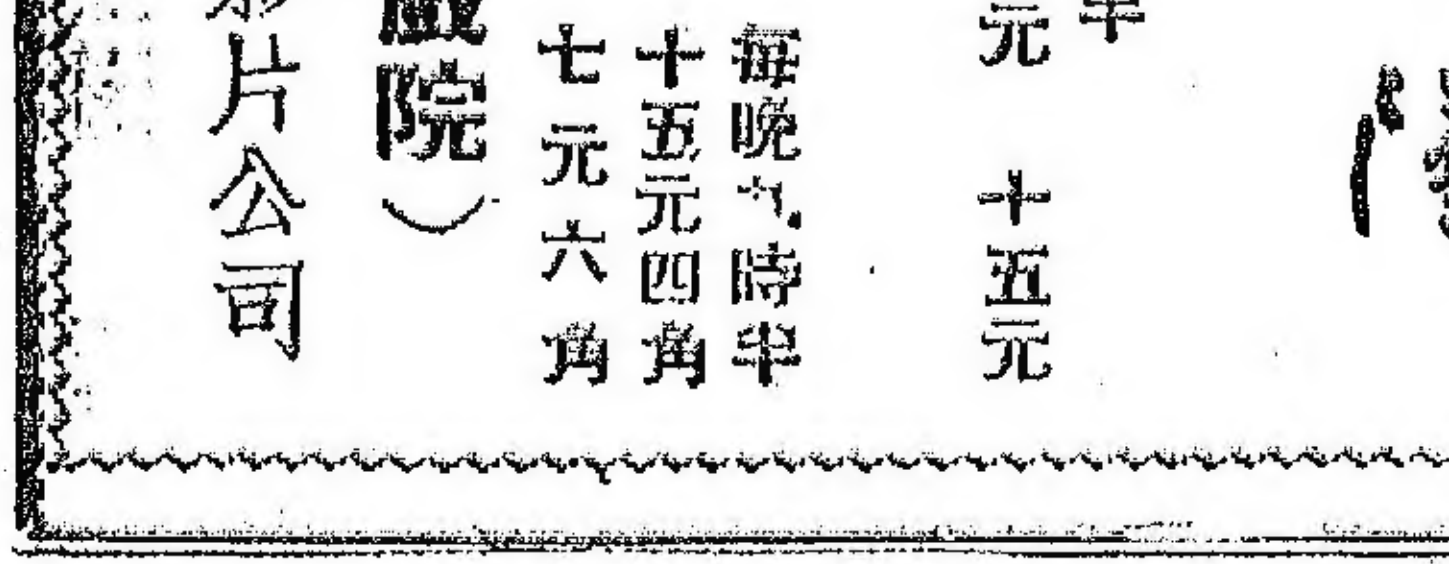 半
元 十五元
每晚九時半
十五元四角
七元六角
戲院）
影片公司